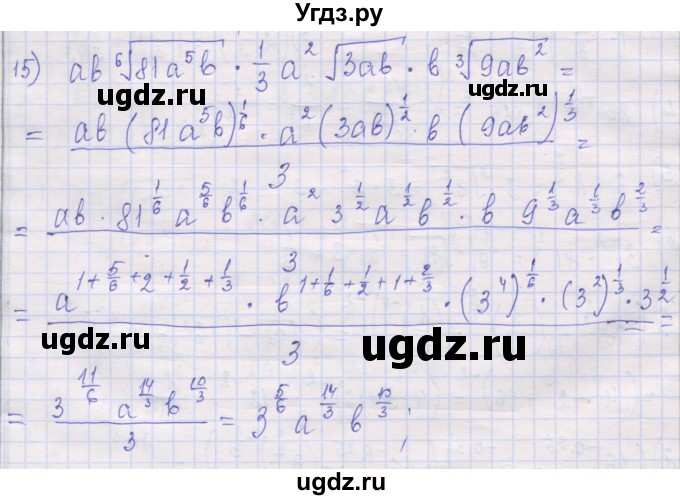 Угдз.ру
15) ab ⁶√(81a⁵b) · 1/3 a² √(3ab) · b ³√(9ab²) =
ugdz.ru ugdz.ru
= (ab (81a⁵b)^(1/6) · a² (3ab)^(1/2) · b (9ab²)^(1/3)) / 3 =
= (ab · 81^(1/6) a^(5/6) b^(1/6) · a² 3^(1/2) a^(1/2) b^(1/2) · b 9^(1/3) a^(1/3) b^(2/3)) / 3 =
= (a^(1+5/6+2+1/2+1/3) · b^(1+1/6+1/2+1+2/3) · (3⁴)^(1/6) · (3²)^(1/3) · 3^(1/2)) / 3 =
ugdz.ru ugdz.ru
= (3^(11/6) a^(14/3) b^(10/3)) / 3 = 3^(5/6) a^(14/3) b^(10/3);
ugdz.ru ugdz.ru